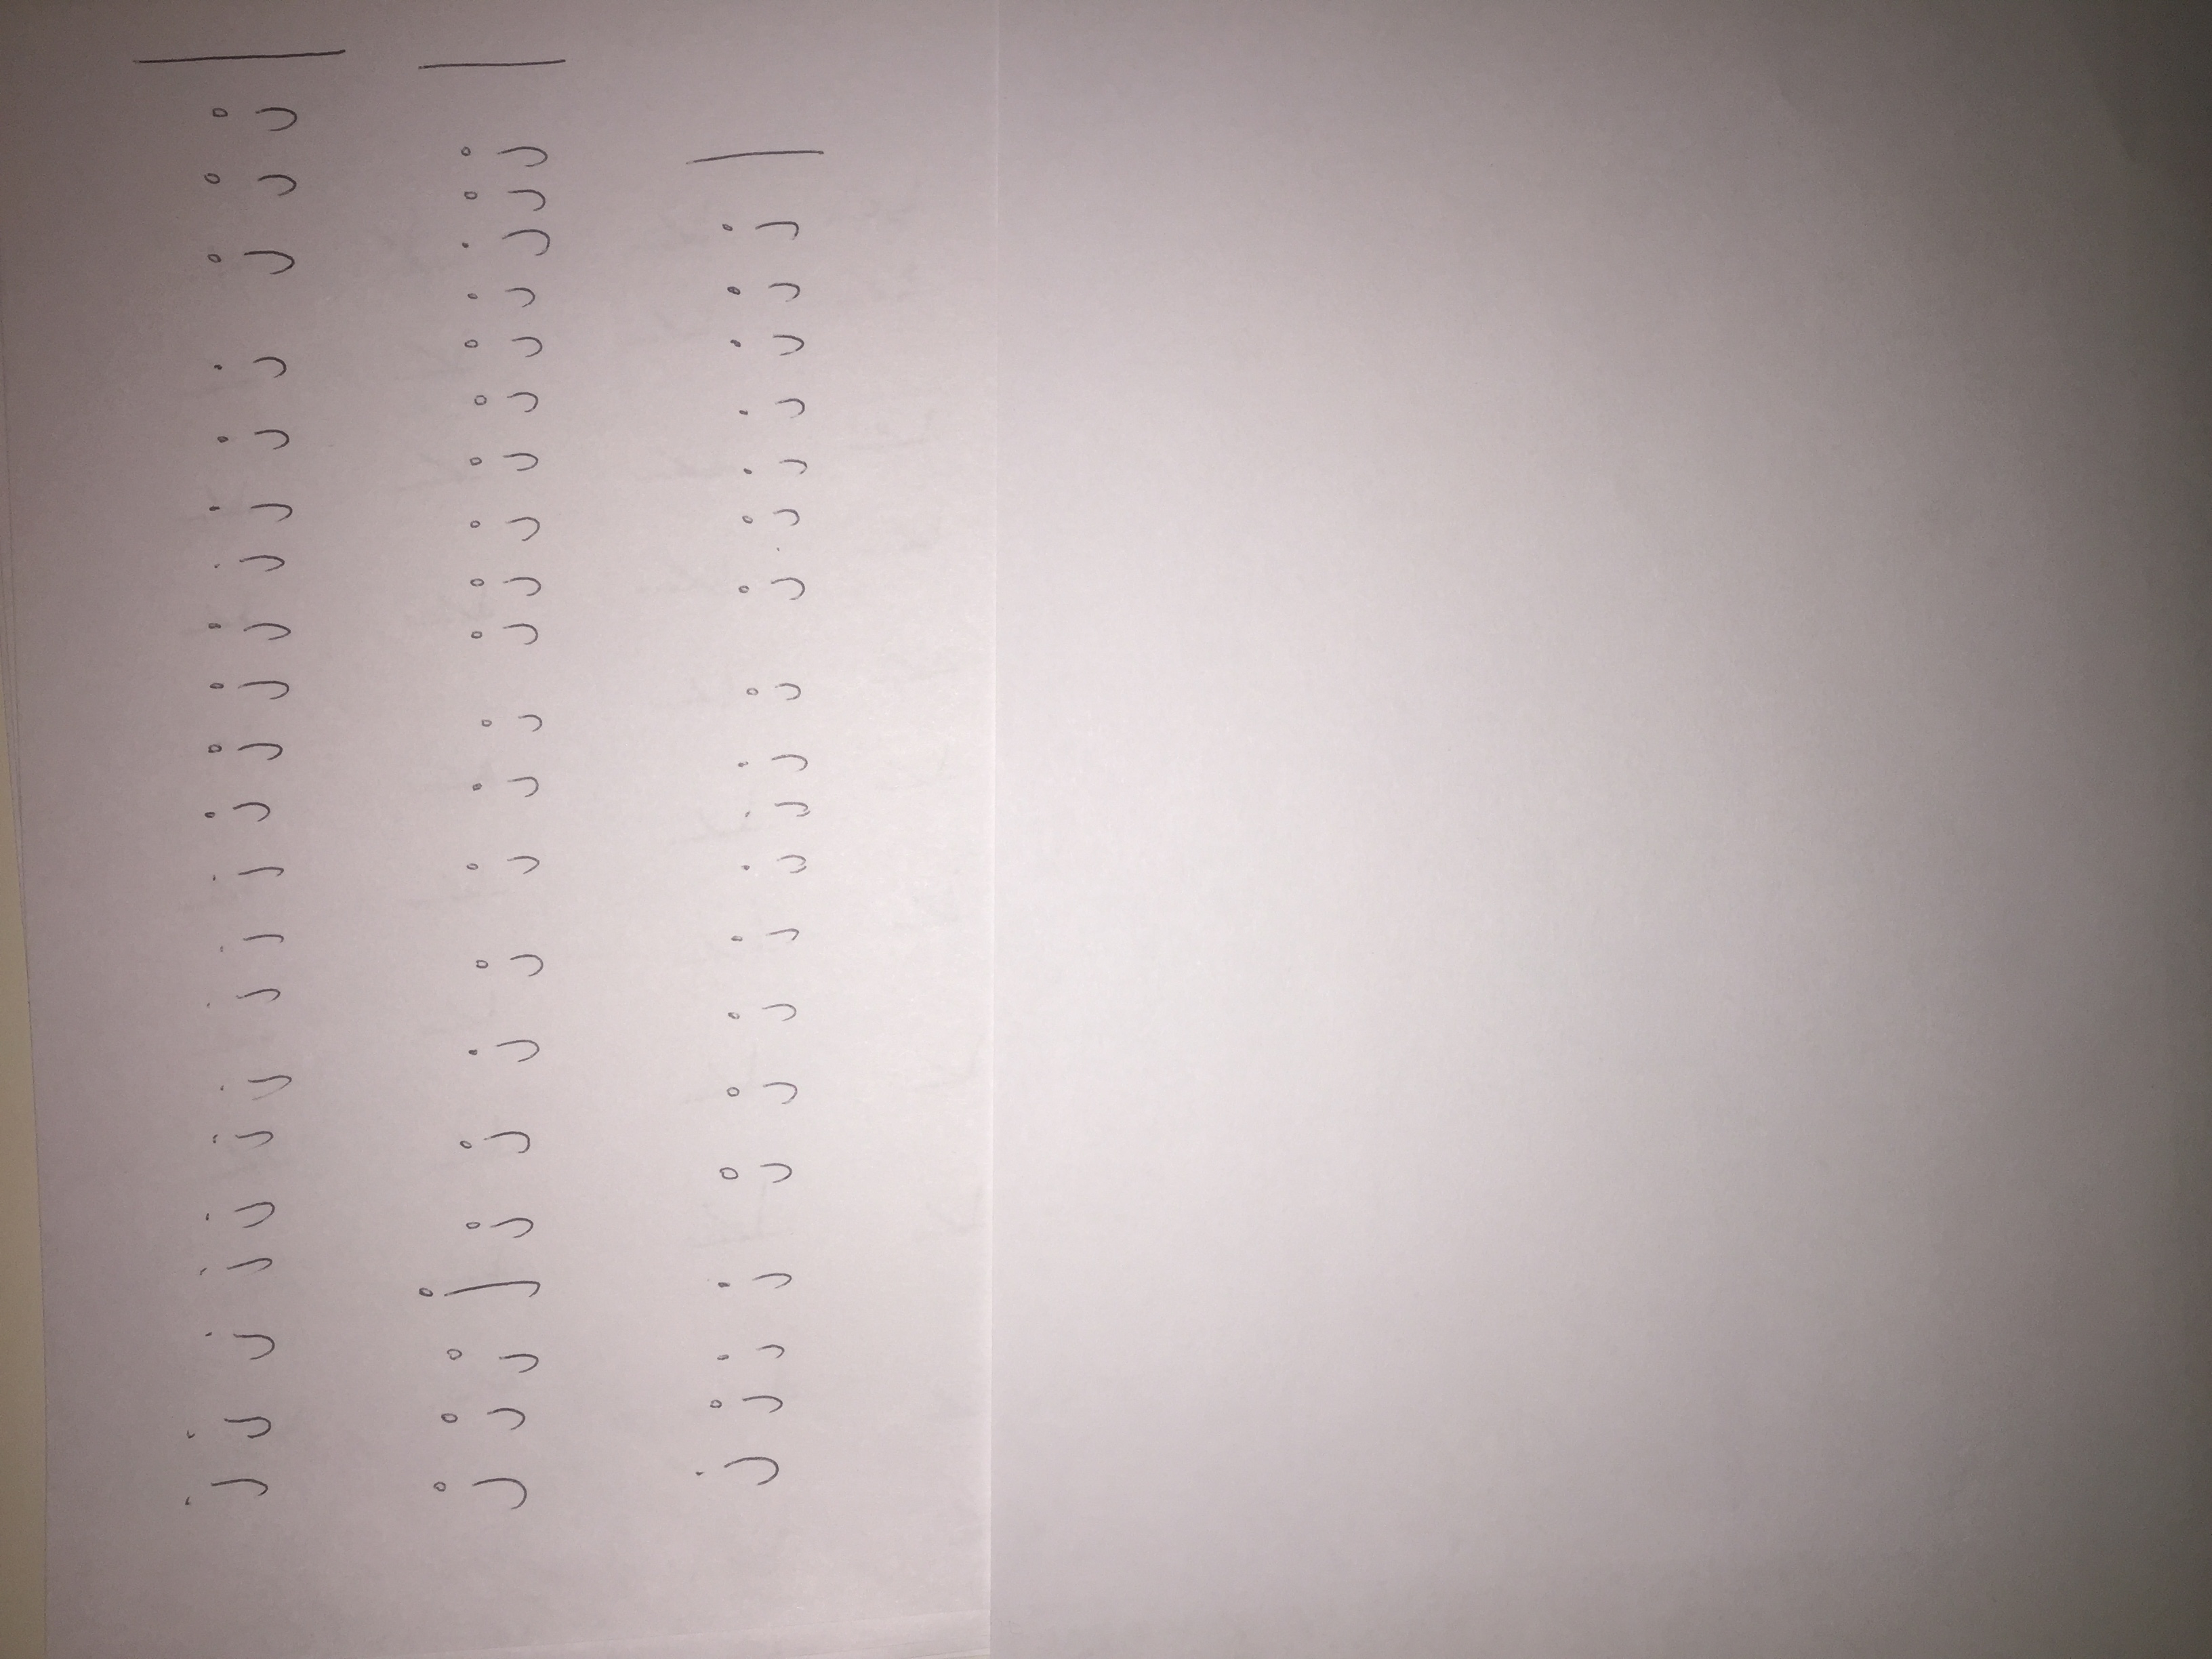 j j j j j j j j j j j j j j j j j j j j j |
j j j j j j j j j j j j j j j j j j j j j |
j j j j j j j j j j j j j j j j j j j |